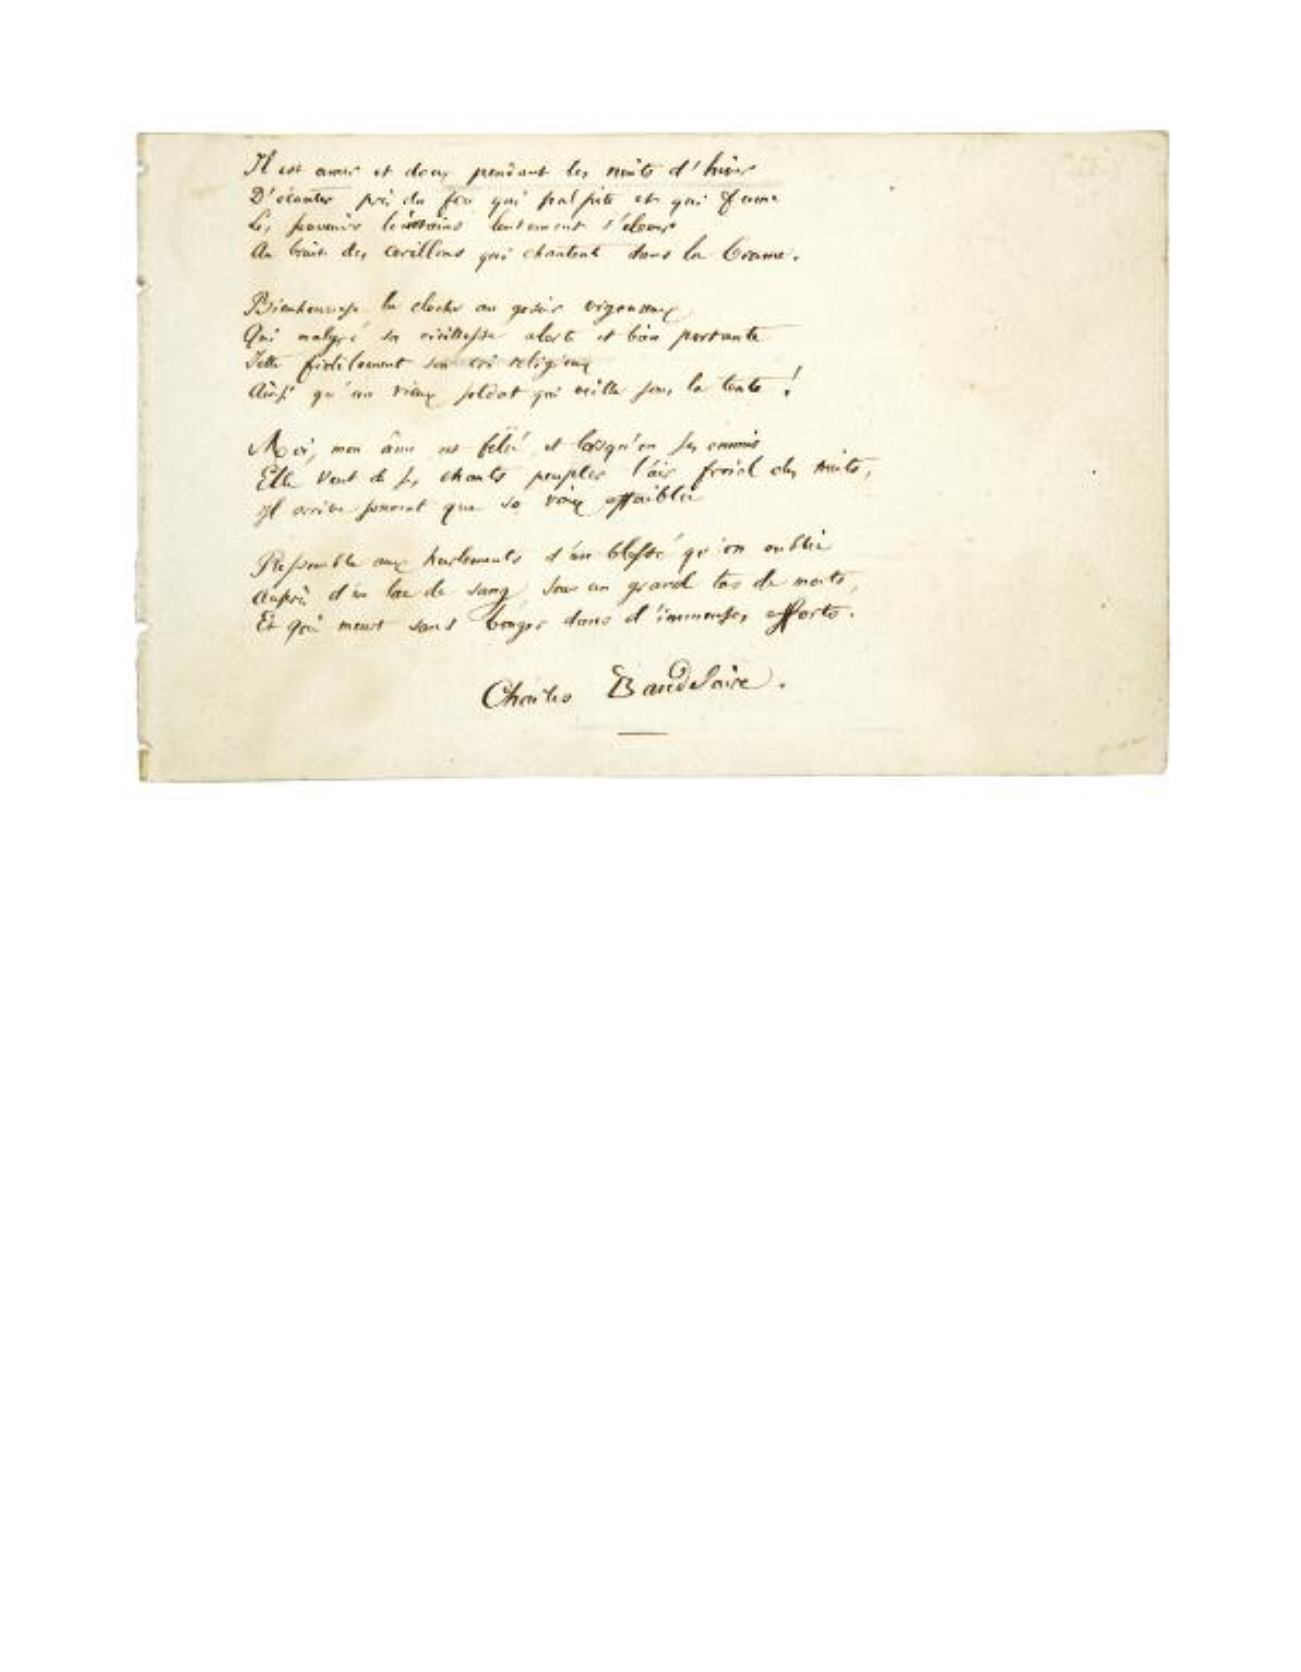 Il est amer et doux pendant les nuits d'hiver
D'écouter près du feu qui palpite et qui fume
Les souvenirs lointains lentement s'élever
Au bruit des carillons qui chantent dans la brume.
Bienheureuse la cloche au gosier vigoureux
Qui malgré sa vieillesse alerte et bien portante
Jette fidèlement son cri religieux
Ainsi qu'un vieux soldat qui veille sous la tente !
Moi, mon âme est fêlée et lorsqu'en ses ennuis
Elle veut de ses chants peupler l'air froid des nuits,
Il arrive souvent que sa voix affaiblie
Ressemble aux hurlements d'un blessé qu'on oublie
Auprès d'un lac de sang sous un grand tas de morts,
Et qui meurt sans bouger dans d'immenses efforts.
Charles Baudelaire.